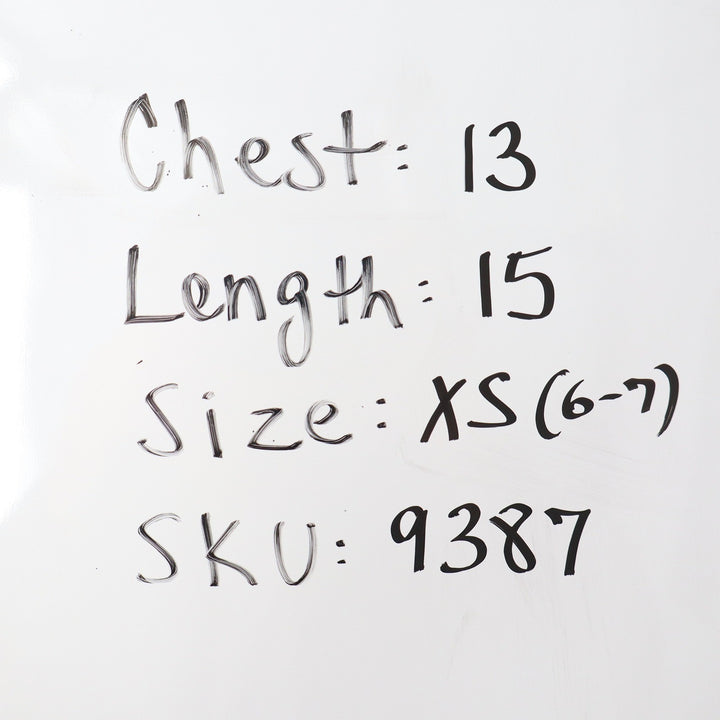 Chest: 13
Length: 15
Size: XS (6-7)
SKU: 9387